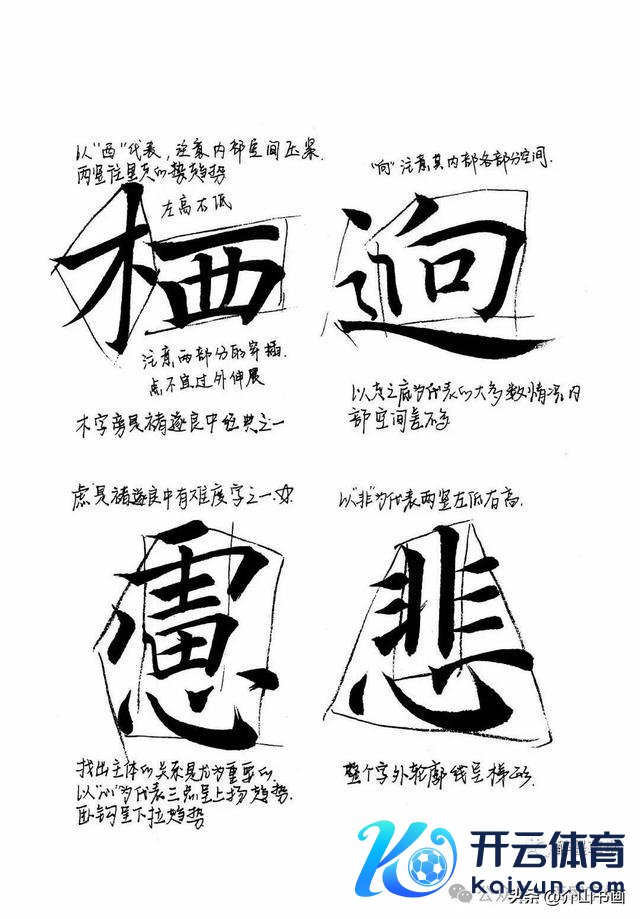 以"西"代表，注意内部空间压紧.
两竖往里包的趋势
左高右低
栖
注意两部分的穿插.
点不宜过外伸展
木字旁是褚遂良中经典之一
"向"注意其内部各部分空间.
迥
以走之底为代表的大多数情况内
部空间差不多
虑是褚遂良中有难度字之一.
慮
找出主体的关系是尤为重要的.
以"心"为代表三点呈上扬趋势.
卧钩呈下拉趋势
以"非"为代表两竖左低右高.
悲
整个字外轮廓线呈梯形.
开云体育
kaiyun.com
公众
头条@介山书画